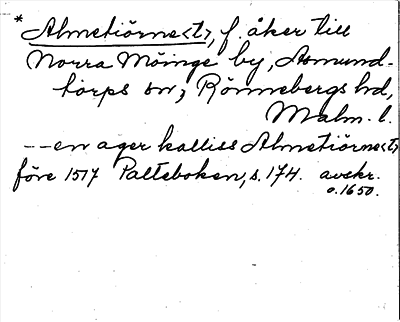 * Almetiörne<t>, f. åker till
Norra Möinge by, Asmund-
torps sn, Rönnebergs hd,
Malm. l.
--en ager kalliss Almetiörne<t>
före 1517 Palteboken, s. 174. avskr.
o. 1650.